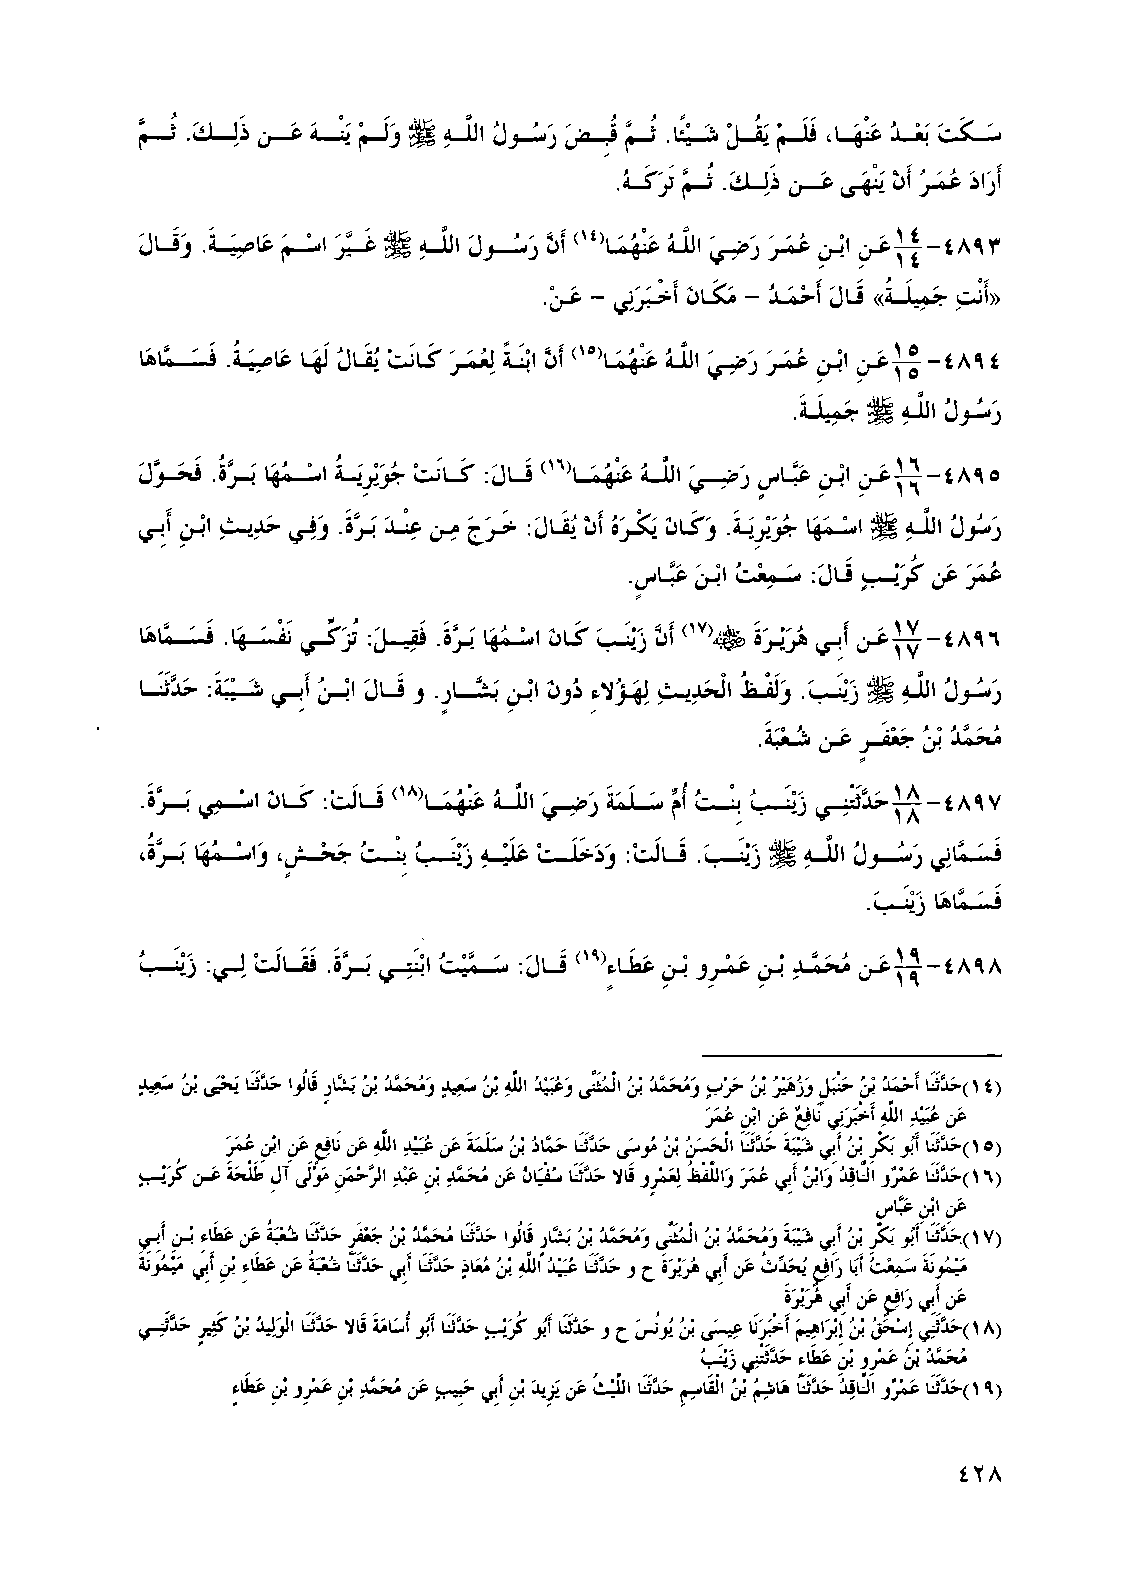 سَكَتَ بَعْدُ عَنْهَا، فَلَمْ يَقُلْ شَيْئًا. ثُمَّ قُبِضَ رَسُولُ اللَّهِ ﷺ وَلَمْ يَنْهَ عَن ذَلِكَ. ثُمَّ
أَرَادَ عُمَرُ أَنْ يَنْهَى عَن ذَلِكَ. ثُمَّ تَرَكَهُ.
٤٨٩٣- ١٤/١٤ عَنِ ابْنِ عُمَرَ رَضِيَ اللَّهُ عَنْهُمَا(١٤) أَنَّ رَسُولَ اللَّهِ ﷺ غَيَّرَ اسْمَ عَاصِيَةَ. وَقَالَ
«أَنْتِ جَمِيلَةُ» قَالَ أَحْمَدُ - مَكَانَ أَخْبَرَنِي - عَنْ.
٤٨٩٤- ١٥/١٥ عَنِ ابْنِ عُمَرَ رَضِيَ اللَّهُ عَنْهُمَا(١٥) أَنَّ ابْنَةً لِعُمَرَ كَانَتْ يُقَالُ لَهَا عَاصِيَةُ. فَسَمَّاهَا
رَسُولُ اللَّهِ ﷺ جَمِيلَةَ.
٤٨٩٥- ١٦/١٦ عَنِ ابْنِ عَبَّاسٍ رَضِيَ اللَّهُ عَنْهُمَا(١٦) قَالَ: كَانَتْ جُوَيْرِيَةُ اسْمُهَا بَرَّةُ. فَحَوَّلَ
رَسُولُ اللَّهِ ﷺ اسْمَهَا جُوَيْرِيَةَ. وَكَانَ يَكْرَهُ أَنْ يُقَالَ: خَرَجَ مِن عِنْدَ بَرَّةَ. وَفِي حَدِيثِ ابْنِ أَبِي
عُمَرَ عَن كُرَيْبٍ قَالَ: سَمِعْتُ ابْنَ عَبَّاسٍ.
٤٨٩٦- ١٧/١٧ عَن أَبِي هُرَيْرَةَ ﵁(١٧) أَنَّ زَيْنَبَ كَانَ اسْمُهَا بَرَّةَ. فَقِيلَ: تُزَكِّي نَفْسَهَا. فَسَمَّاهَا
رَسُولُ اللَّهِ ﷺ زَيْنَبَ. وَلَفْظُ الْحَدِيثِ لِهَؤُلَاءِ دُونَ ابْنِ بَشَّارٍ. و قَالَ ابْنُ أَبِي شَيْبَةَ: حَدَّثَنَا
مُحَمَّدُ بْنُ جَعْفَرٍ عَن شُعْبَةَ.
٤٨٩٧- ١٨/١٨ حَدَّثَتْنِي زَيْنَبُ بِنْتُ أُمِّ سَلَمَةَ رَضِيَ اللَّهُ عَنْهُمَا(١٨) قَالَتْ: كَانَ اسْمِي بَرَّةَ.
فَسَمَّانِي رَسُولُ اللَّهِ ﷺ زَيْنَبَ. قَالَتْ: وَدَخَلَتْ عَلَيْهِ زَيْنَبُ بِنْتُ جَحْشٍ، وَاسْمُهَا بَرَّةُ،
فَسَمَّاهَا زَيْنَبَ.
٤٨٩٨- ١٩/١٩ عَن مُحَمَّدِ بْنِ عَمْرِو بْنِ عَطَاءٍ(١٩) قَالَ: سَمَّيْتُ ابْنَتِي بَرَّةَ. فَقَالَتْ لِي: زَيْنَبُ
(١٤)حَدَّثَنَا أَحْمَدُ بْنُ حَنْبَلٍ وَزُهَيْرُ بْنُ حَرْبٍ وَمُحَمَّدُ بْنُ الْمُثَنَّى وَعُبَيْدُ اللَّهِ بْنُ سَعِيدٍ وَمُحَمَّدُ بْنُ بَشَّارٍ قَالُوا حَدَّثَنَا يَحْيَى بْنُ سَعِيدٍ
عَن عُبَيْدِ اللَّهِ أَخْبَرَنِي نَافِعٌ عَنِ ابْنِ عُمَرَ
(١٥)حَدَّثَنَا أَبُو بَكْرِ بْنُ أَبِي شَيْبَةَ حَدَّثَنَا الْحَسَنُ بْنُ مُوسَى حَدَّثَنَا حَمَّادُ بْنُ سَلَمَةَ عَن عُبَيْدِ اللَّهِ عَن نَافِعٍ عَنِ ابْنِ عُمَرَ
(١٦)حَدَّثَنَا عَمْرٌو النَّاقِدُ وَابْنُ أَبِي عُمَرَ وَاللَّفْظُ لِعَمْرٍو قَالَا حَدَّثَنَا سُفْيَانُ عَن مُحَمَّدِ بْنِ عَبْدِ الرَّحْمَنِ مَوْلَى آلِ طَلْحَةَ عَن كُرَيْبٍ
عَنِ ابْنِ عَبَّاسٍ
(١٧)حَدَّثَنَا أَبُو بَكْرِ بْنُ أَبِي شَيْبَةَ وَمُحَمَّدُ بْنُ الْمُثَنَّى وَمُحَمَّدُ بْنُ بَشَّارٍ قَالُوا حَدَّثَنَا مُحَمَّدُ بْنُ جَعْفَرٍ حَدَّثَنَا شُعْبَةُ عَن عَطَاءِ بْنِ أَبِي
مَيْمُونَةَ سَمِعْتُ أَبَا رَافِعٍ يُحَدِّثُ عَن أَبِي هُرَيْرَةَ ح و حَدَّثَنَا عُبَيْدُ اللَّهِ بْنُ مُعَاذٍ حَدَّثَنَا أَبِي حَدَّثَنَا شُعْبَةُ عَن عَطَاءِ بْنِ أَبِي مَيْمُونَةَ
عَن أَبِي رَافِعٍ عَن أَبِي هُرَيْرَةَ
(١٨)حَدَّثَنِي إِسْحَقُ بْنُ إِبْرَاهِيمَ أَخْبَرَنَا عِيسَى بْنُ يُونُسَ ح و حَدَّثَنَا أَبُو كُرَيْبٍ حَدَّثَنَا أَبُو أُسَامَةَ قَالَا حَدَّثَنَا الْوَلِيدُ بْنُ كَثِيرٍ حَدَّثَنِي
مُحَمَّدُ بْنُ عَمْرِو بْنِ عَطَاءٍ حَدَّثَتْنِي زَيْنَبُ
(١٩)حَدَّثَنَا عَمْرٌو النَّاقِدُ حَدَّثَنَا هَاشِمُ بْنُ الْقَاسِمِ حَدَّثَنَا اللَّيْثُ عَن يَزِيدَ بْنِ أَبِي حَبِيبٍ عَن مُحَمَّدِ بْنِ عَمْرِو بْنِ عَطَاءٍ
٤٢٨